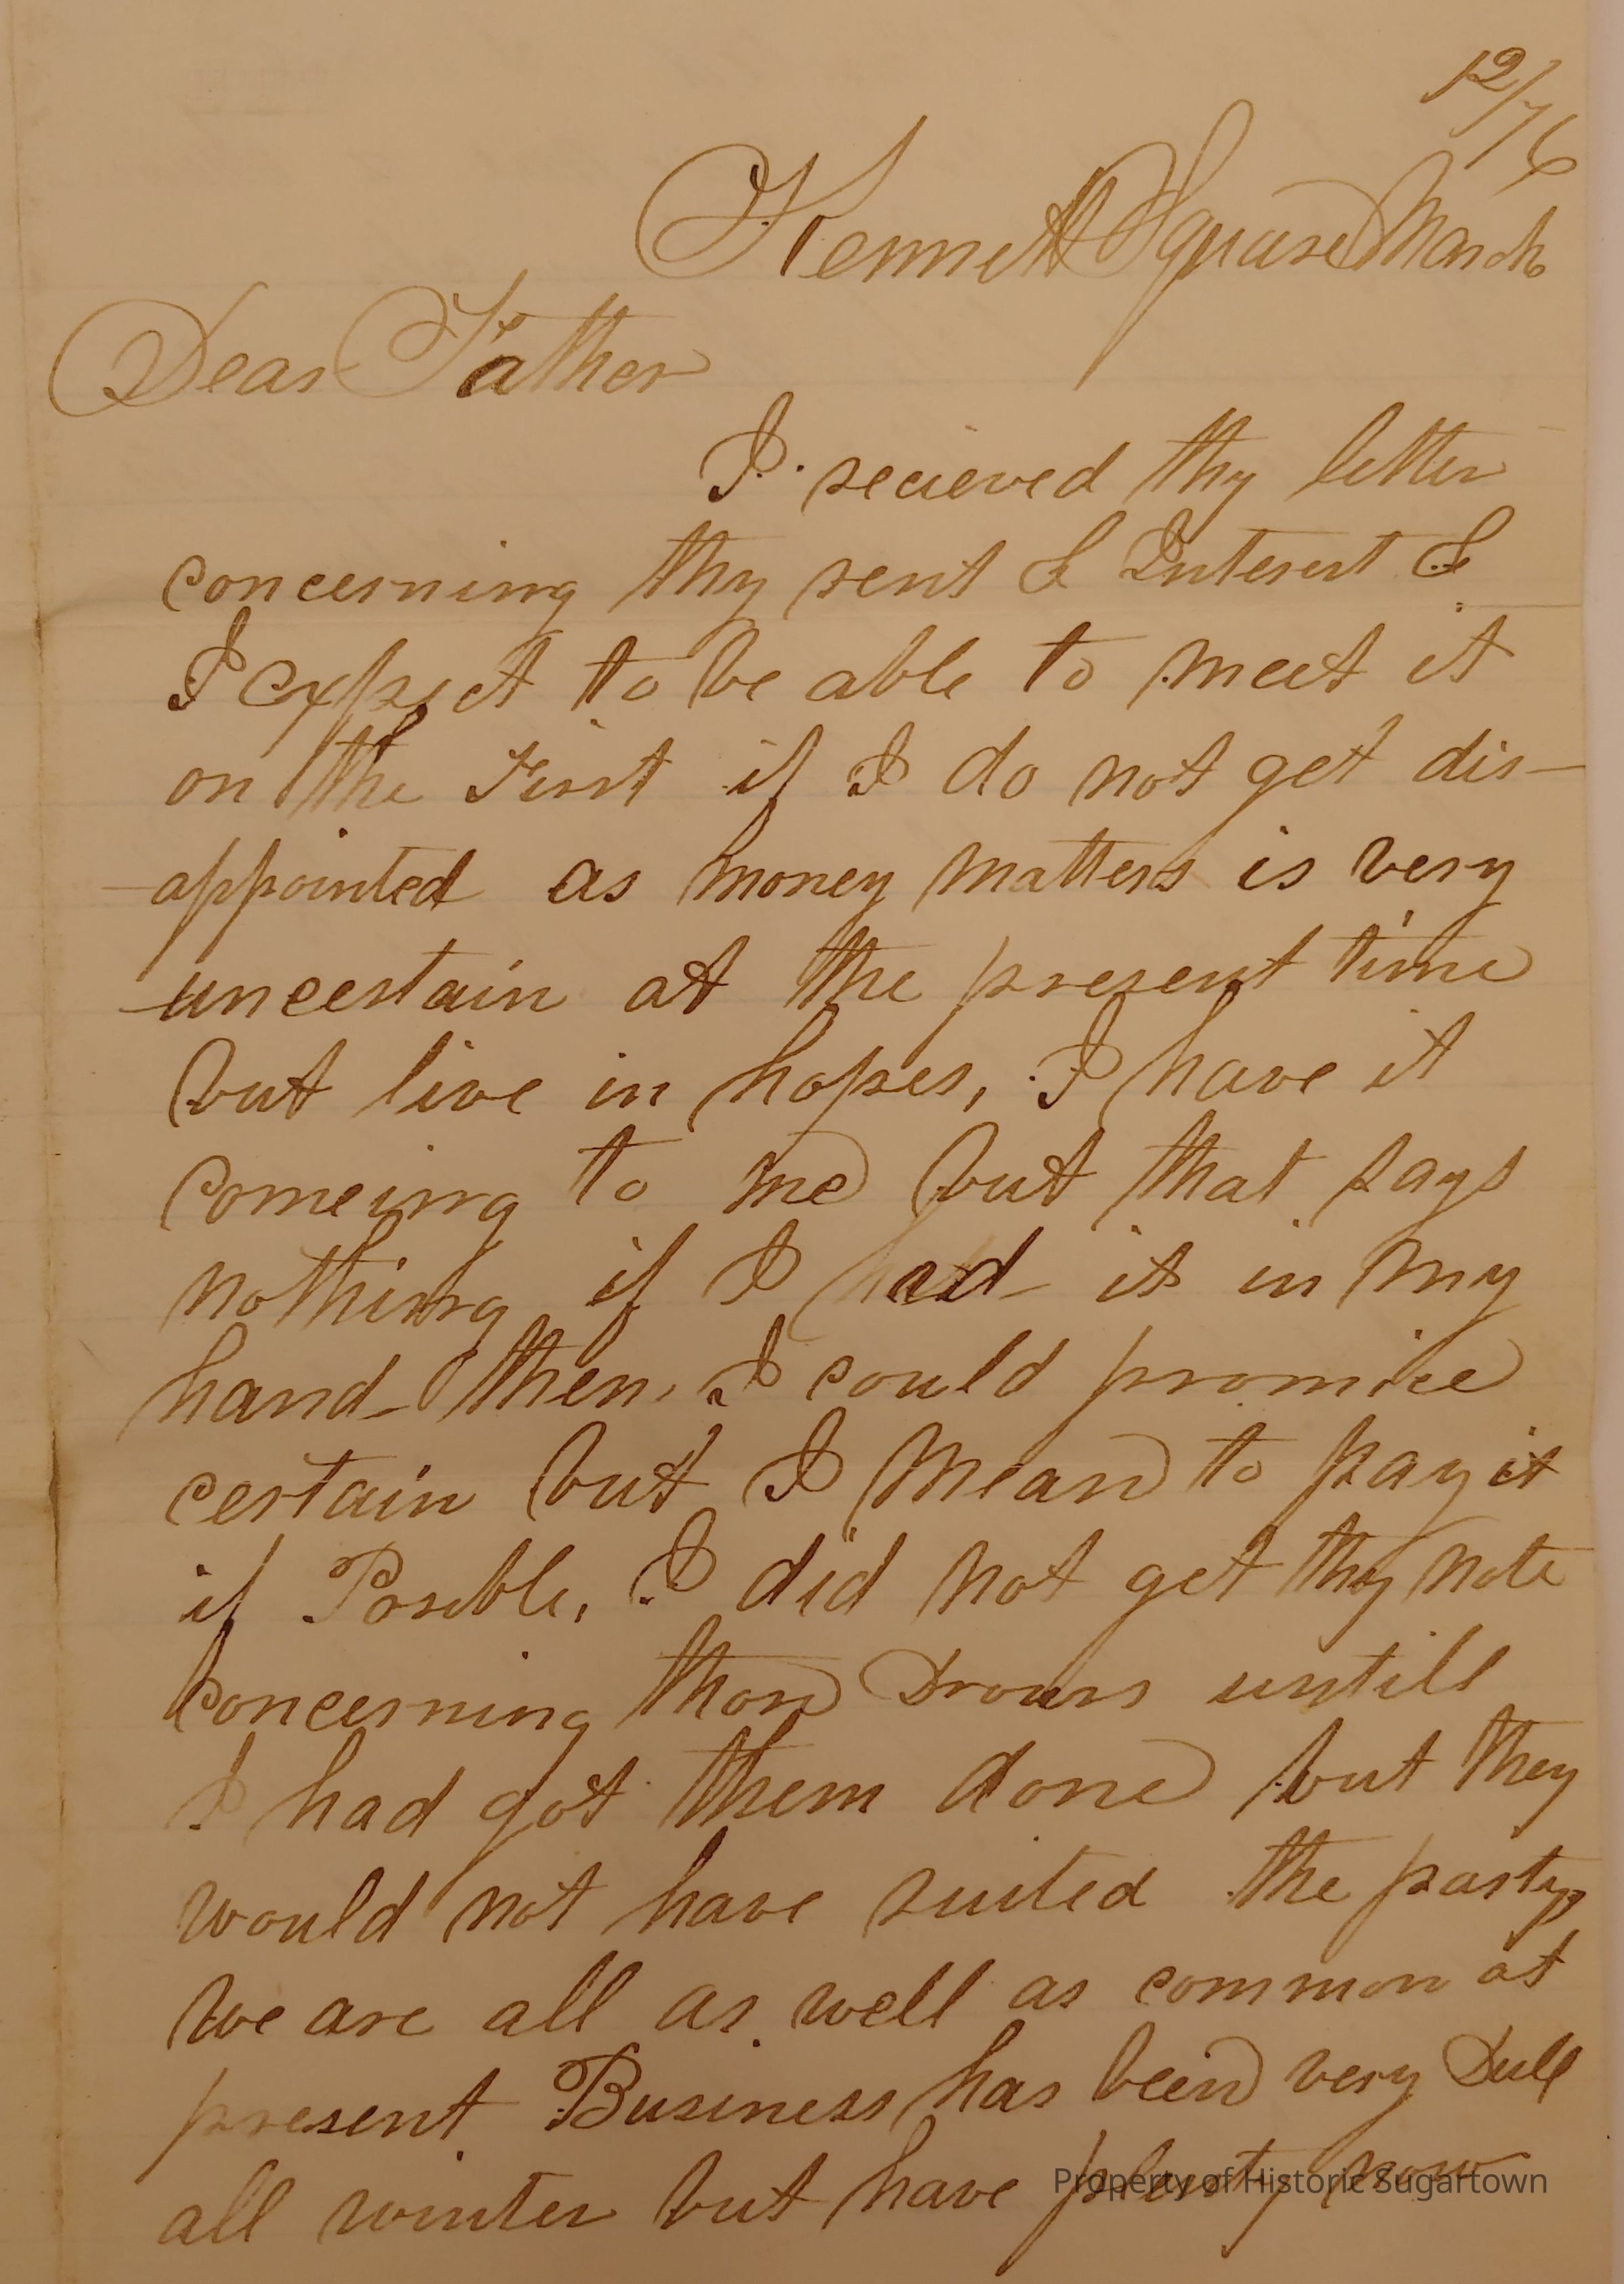 12/76
Kennett Square March
Dear Father
I recieved thy letter
concerning thy rent & Interest &
I expect to be able to meet it
on the First if I do not get dis-
appointed as money matters is very
uncertain at the present time
but live in hopes, I have it
comeing to me but that pays
nothing if I had it in my
hand then I could promise
certain but I mean to pay it
if Posible, I did not get thy note
concerning thon Drours untill
I had got them done but they
would not have suited the party,
we are all as well as common at
present Business has been very Dull
all winter but have plenty now
Property of Historic Sugartown